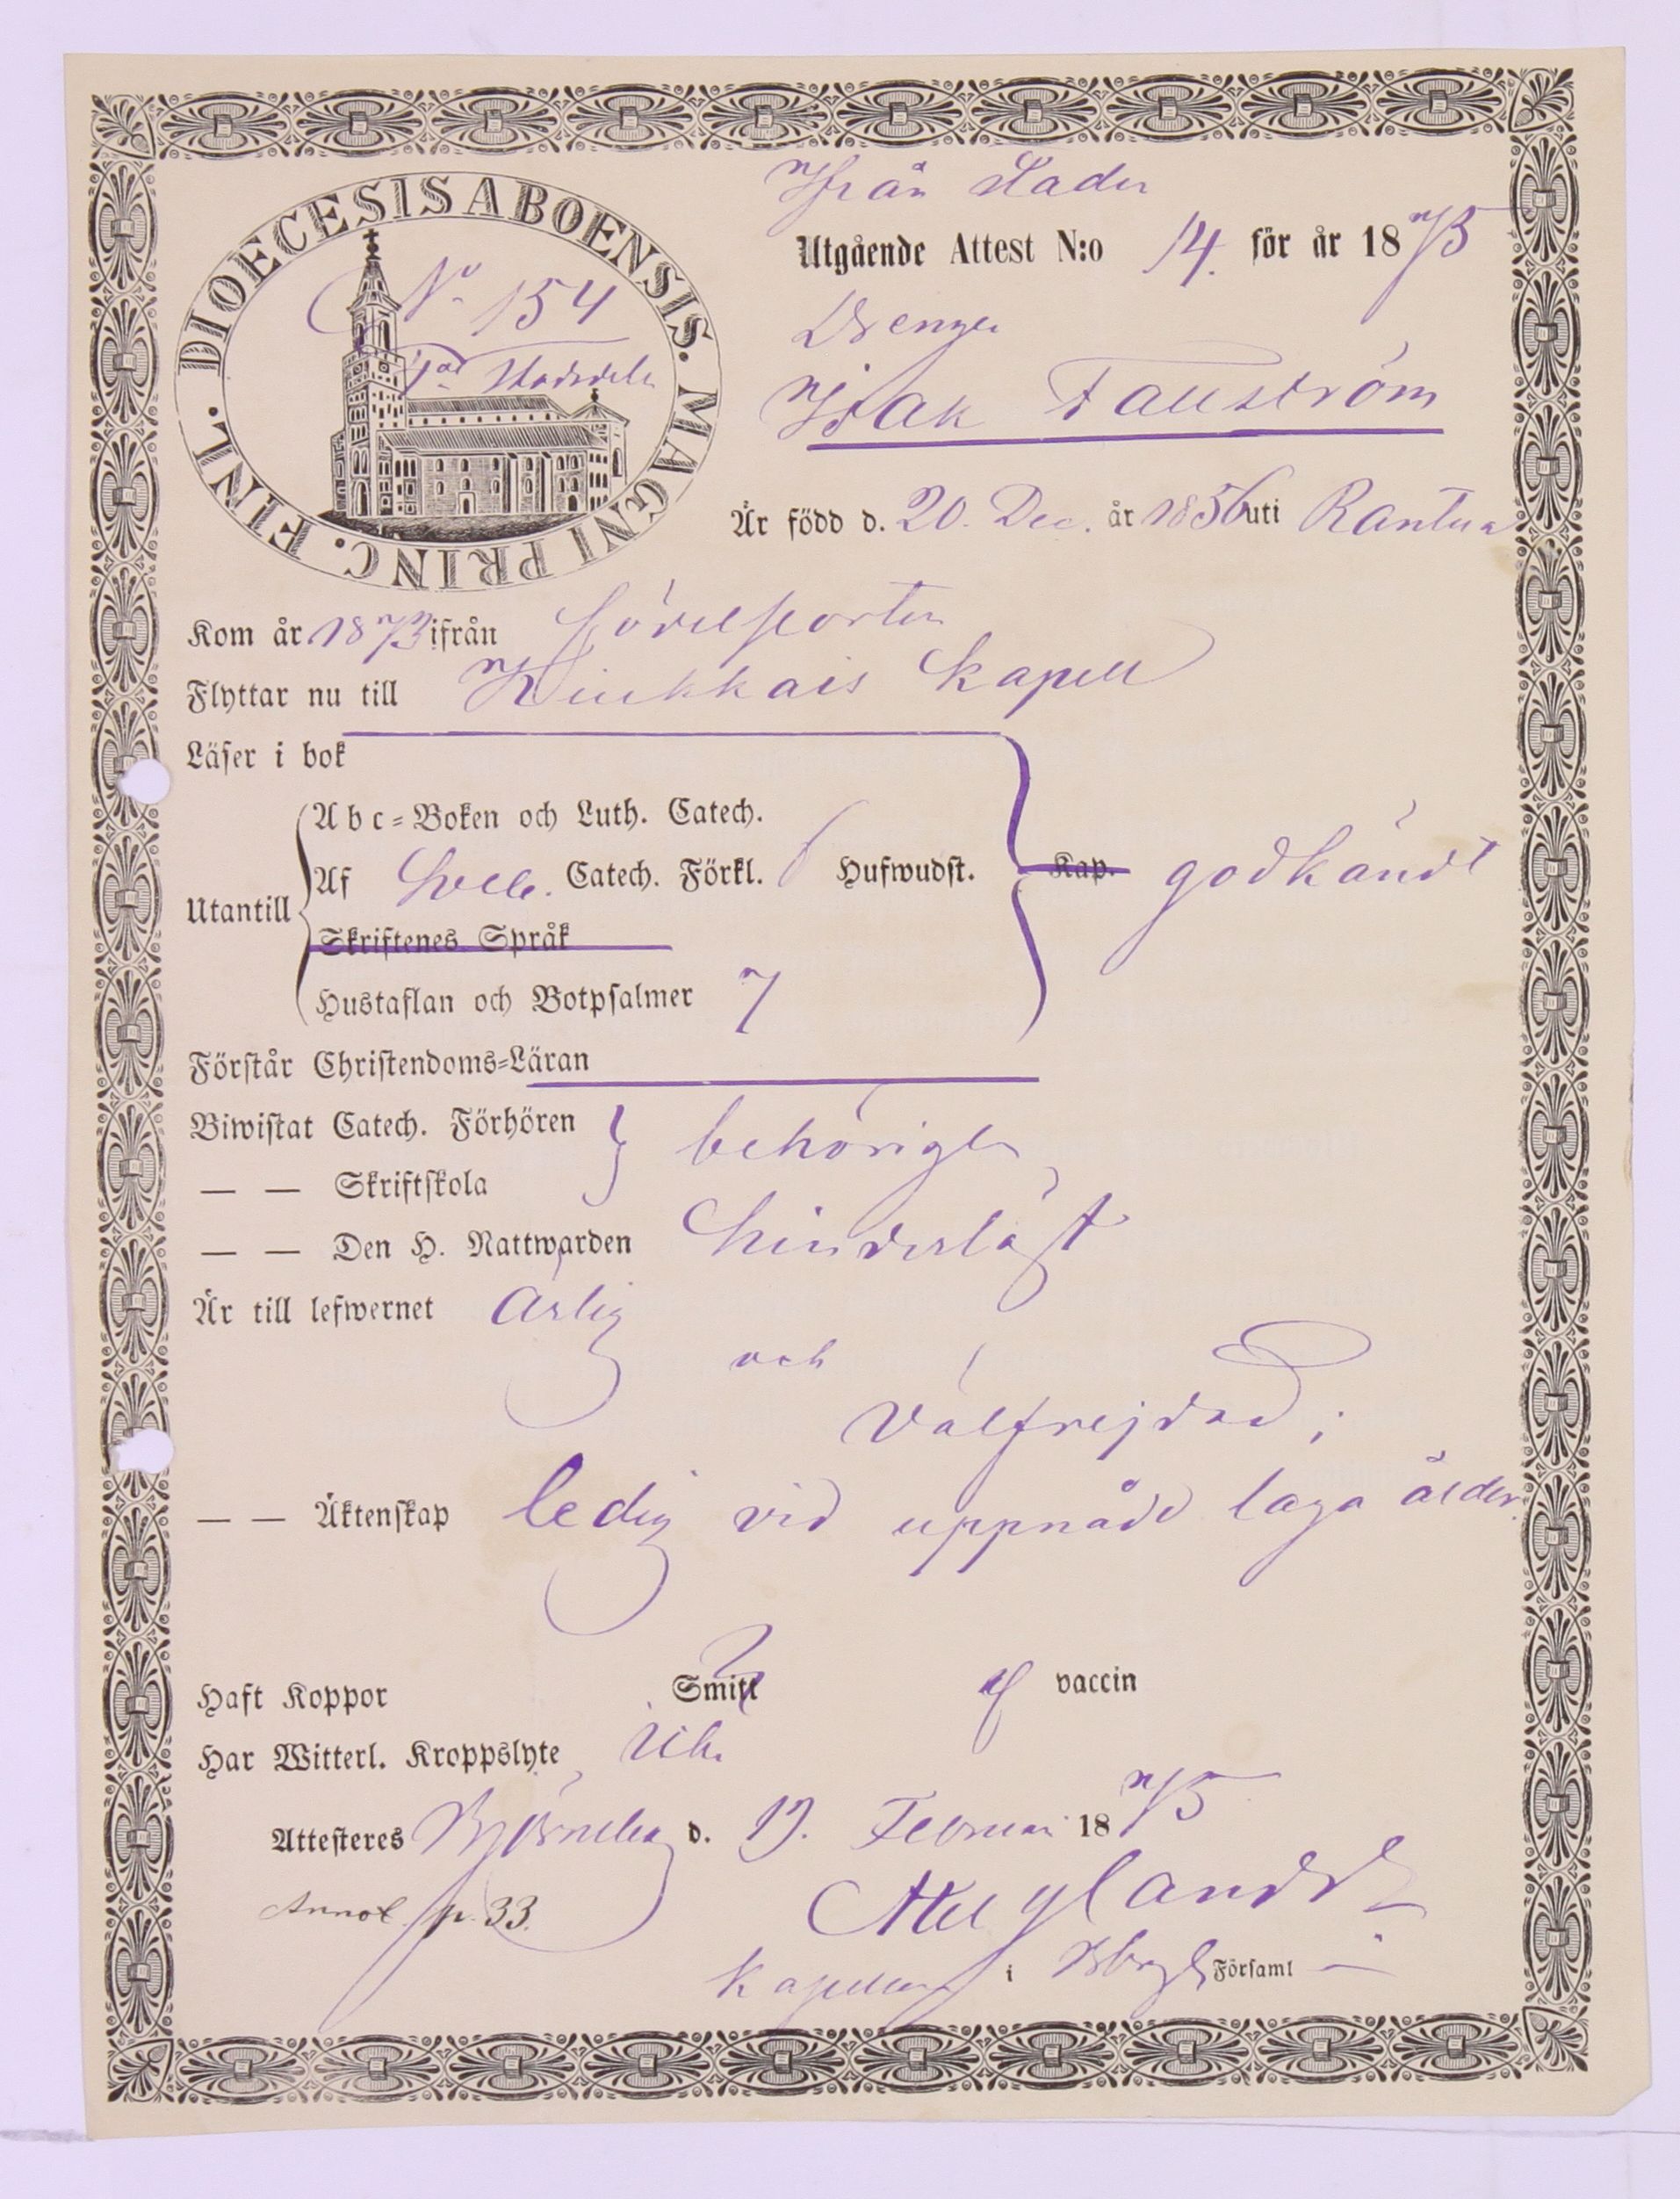 DIOECESIS ABOENSIS. MAGNI PRINC. FINL.
No 154
Ifrån Staden
Utgående Attest N:o 14. för år 1875
Drengen
Isak Fauström
Är född d. 20. Dec. år 1856 uti
Kom år 1873 ifrån
Flyttar nu till Kiukkais Kapell
Läser i bok
Abc=Boken och Luth. Catech.
Utantill
Af Sveb. Catech. Förkl. 6 Hufwudst. Kap. godkändt
Skriftenes Språk
Hustaflan och Botpsalmer 7
Förstår Christendoms=Läran
Biwistat Catech. Förhören behörigen
— — Skriftskola
— — Den H. Nattwarden hinderlöst
Är till lefwernet ärlig
och
välfrejdad;
— — Äktenskap ledig vid uppnådd laga ålder.
Haft Koppor Smitt af vaccin
Har Witterl. Kroppslyte
Attesteres Björneborg d. 19. Februari 1875
Annot. p. 33.
Kapellan i Bborgs Församl